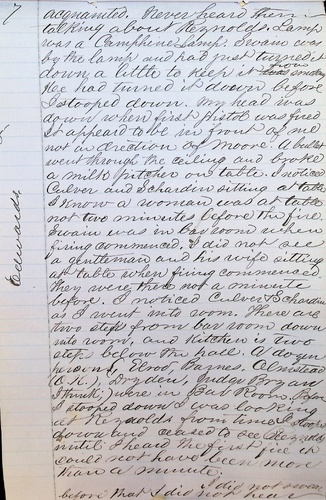 7
acquainted. Never heard them
talking about Reynolds. Lamp
was a Camphene Lamp. Swain was
by the lamp and had just turned it
down a little to keep it from smoking
He had turned it down before
I stooped down. My head was
down when first pistol was fired
It appeard to be in front of me
not in direction of Moore. A bullet
went through the ceiling and broke
a milk pitcher on table. I noticed
Culver and Schardin sitting at table
I know a woman was at table
not two minutes before the fire.
Swain was in bar room when
firing commenced. I did not see
a gentleman and his wife sitting
at table when firing commenced
they were there not a minute
before. I noticed Culver & Schardin
as I went into room. There are
two steps from bar room down
into room, and kitchen is two
steps below the hall. A dozen
persons, Elrod, Barnes, Olmstead
(O.K.), Dryden, Judge Bryan
I think,) were in Bar Room. Before
I stooped down I was looking
at Reynolds from time I stooped
down and ceased to see Reynolds
until I heard the first fire it
could not have been more
than a minute.
I did not swear
before that I did not hear
Edwards